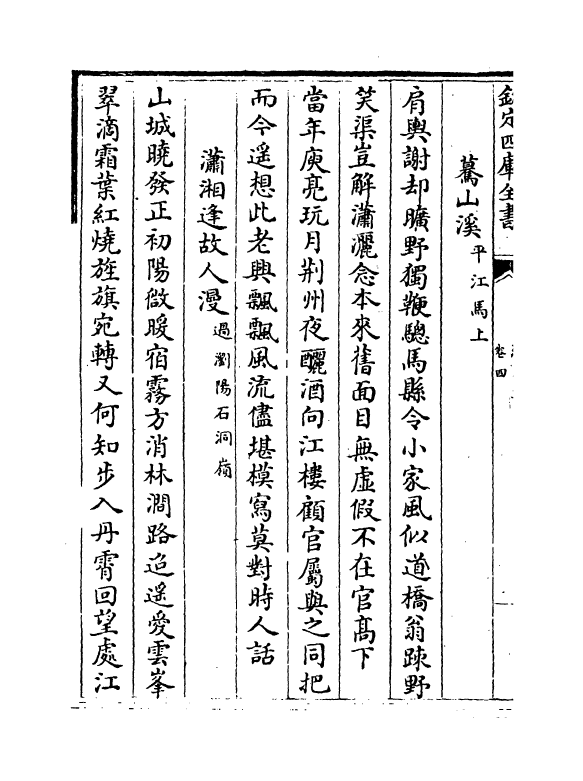 欽定四庫全書
卷四
驀山溪平江馬上
肩輿謝却曠野獨鞭驄馬縣令小家風似道橋翁踈野
笑渠豈解瀟灑念本來舊面目無虛假不在官髙下
當年庾亮玩月荆州夜釃酒向江樓顧官屬與之同把
而今遥想此老興飄飄風流儘堪模寫莫對時人話
瀟湘逢故人漫過瀏陽石洞嶺
山城曉發正初陽微暖宿霧方消林澗路迢遥愛雲峯
翠滴霜葉紅燒旌旗宛轉又何知步入丹霄回望處江